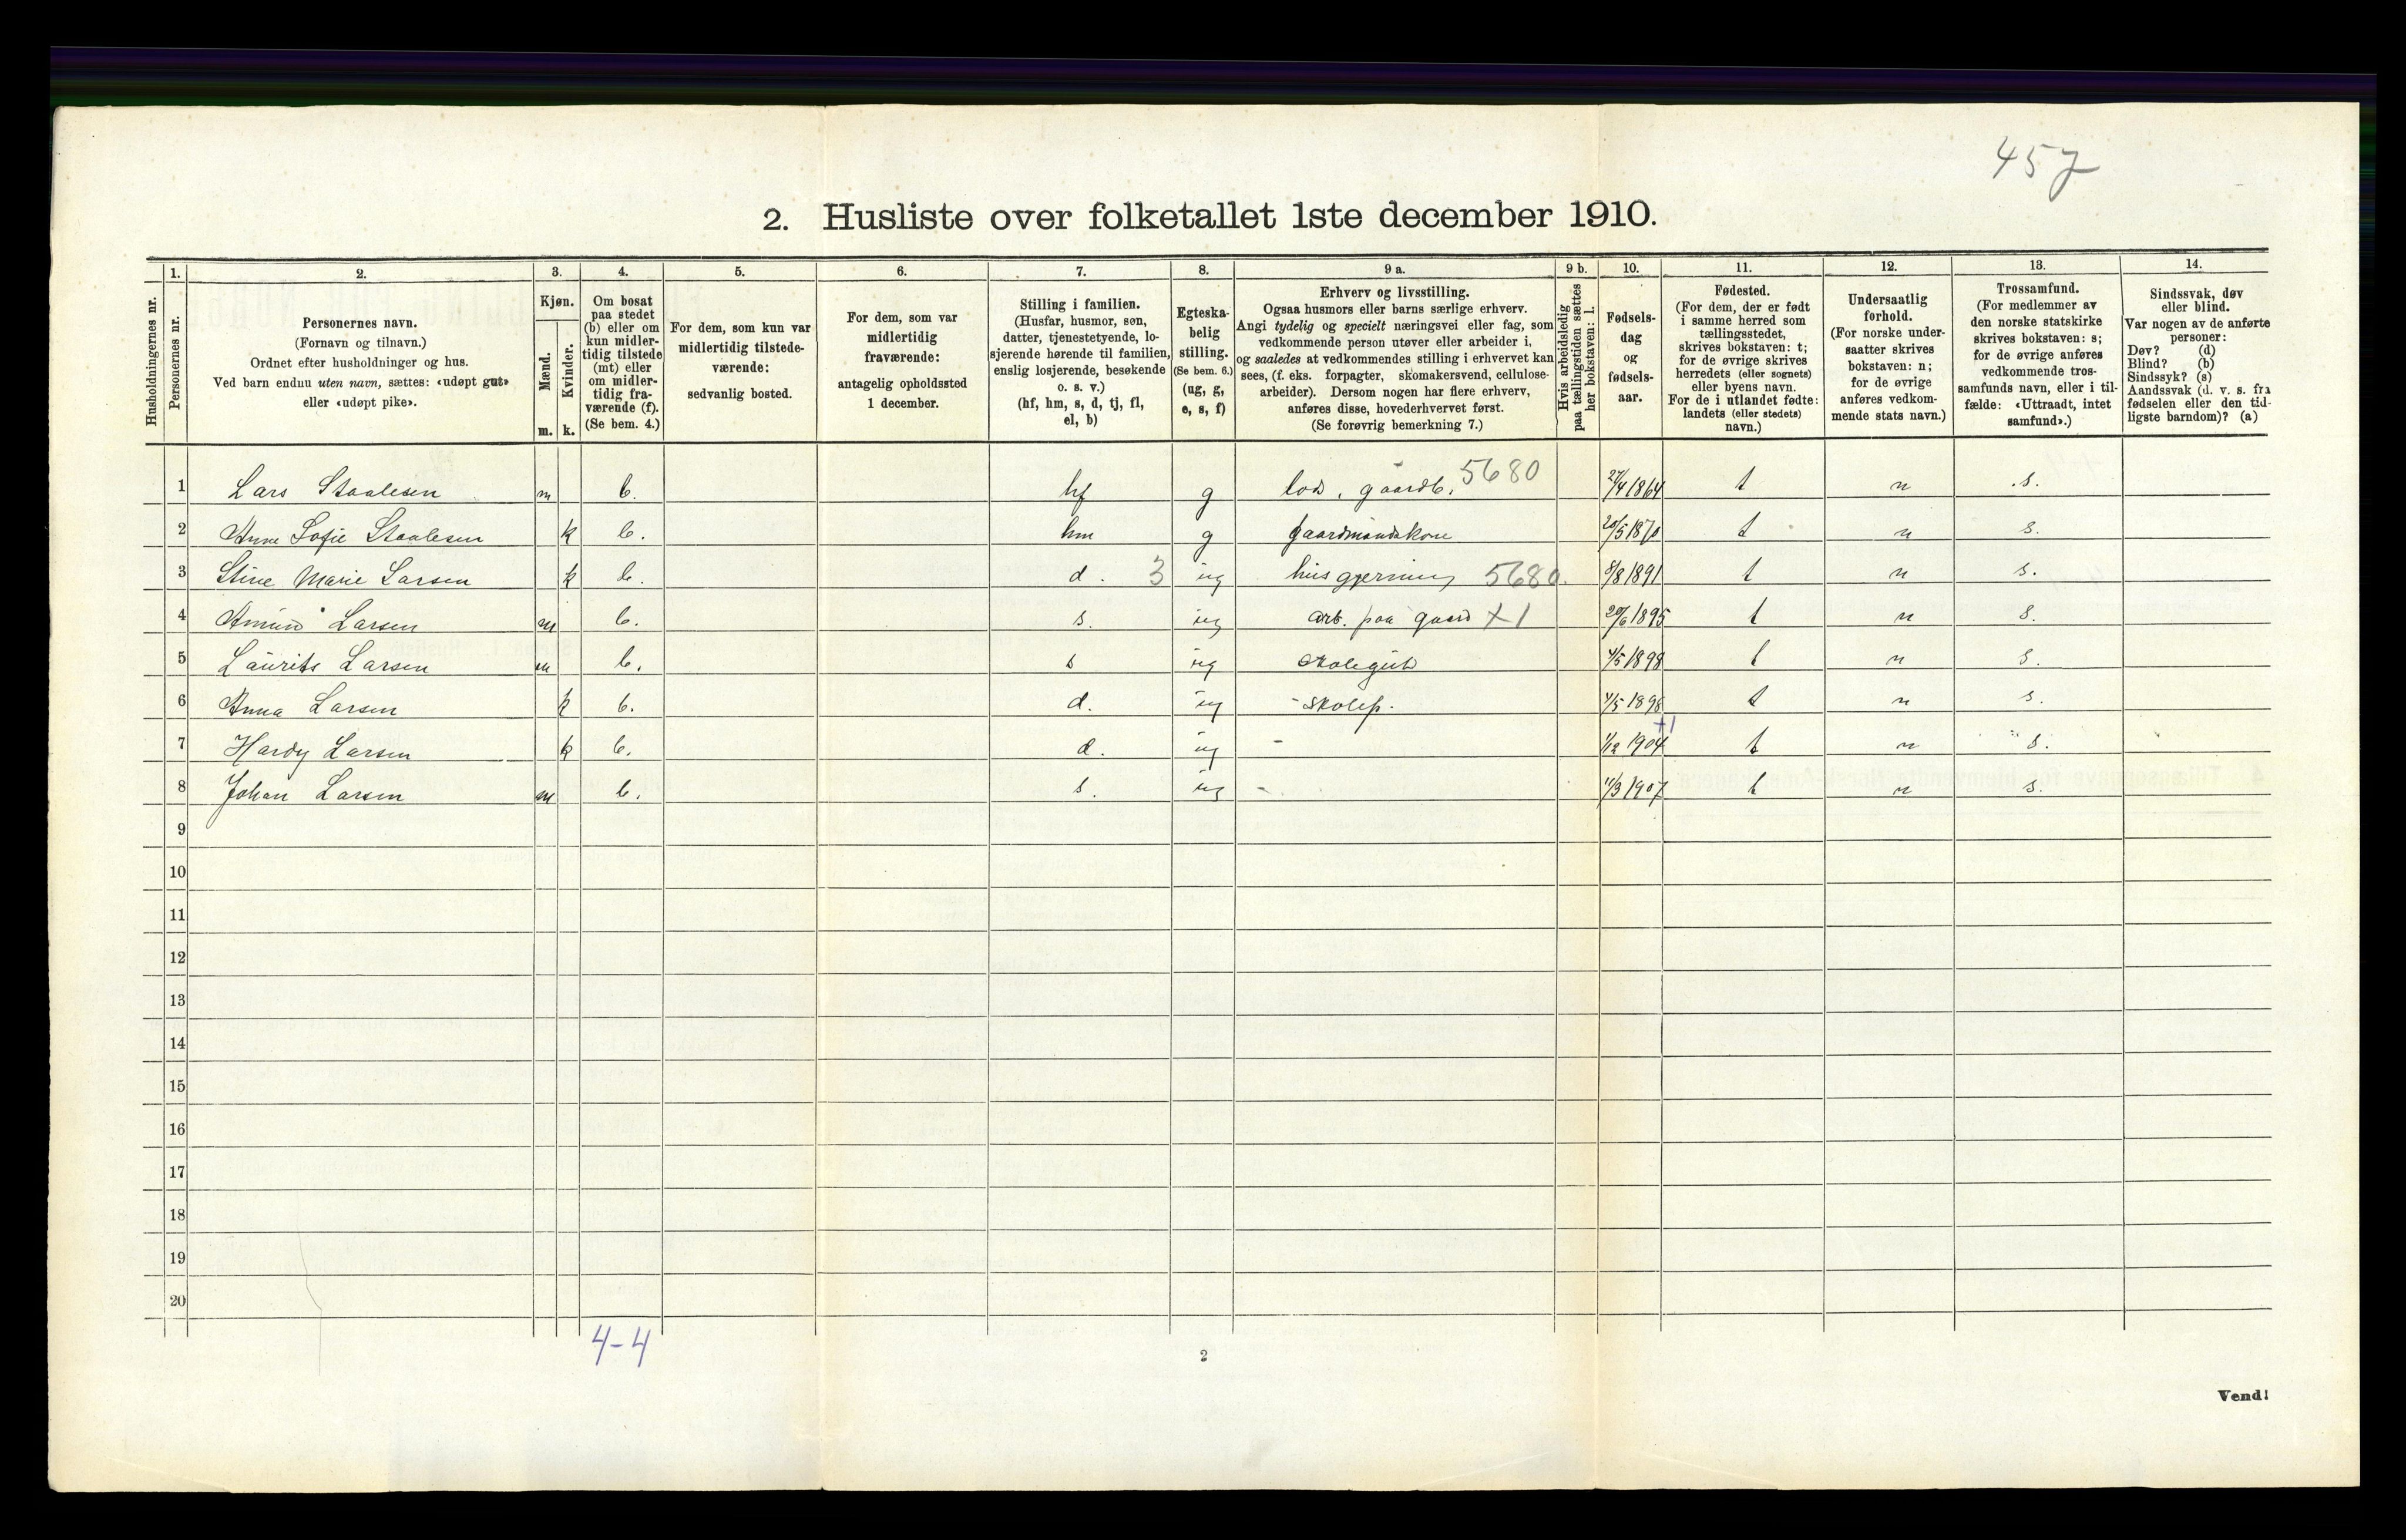 457
2. Husliste over folketallet 1ste december 1910.
Husholdningernes nr.
1.
Personernes nr.
2.
Personernes navn.
(Fornavn og tilnavn.)
Ordnet efter husholdninger og hus.
Ved barn endnu uten navn, sættes: «udøpt gut»
eller «udøpt pike».
3.
Kjøn.
Mænd.
m.
Kvinder.
k.
4.
Om bosat
paa stedet
(b) eller om
kun midler-
tidig tilstede
(mt) eller
om midler-
tidig fra-
værende (f).
(Se bem. 4.)
5.
For dem, som kun var
midlertidig tilstede-
værende:
sedvanlig bosted.
6.
For dem, som var
midlertidig
fraværende:
antagelig opholdssted
1 december.
7.
Stilling i familien.
(Husfar, husmor, søn,
datter, tjenestetyende, lo-
sjerende hørende til familien,
enslig losjerende, besøkende
o. s. v.)
(hf, hm, s, d, tj, fl,
el, b)
8.
Egteska-
belig
stilling.
(Se bem. 6.)
(ug, g,
e, s, f)
9 a.
Erhverv og livsstilling.
Ogsaa husmors eller barns særlige erhverv.
Angi tydelig og specielt næringsvei eller fag, som
vedkommende person utøver eller arbeider i,
og saaledes at vedkommendes stilling i erhvervet kan
sees, (f. eks. forpagter, skomakersvend, cellulose-
arbeider). Dersom nogen har flere erhverv,
anføres disse, hovederhvervet først.
(Se forøvrig bemerkning 7.)
9 b.
Hvis arbeidsledig
paa tællingstiden sættes
her bokstaven: l.
10.
Fødsels-
dag
og
fødsels-
aar.
11.
Fødested.
(For dem, der er født
i samme herred som
tællingsstedet,
skrives bokstaven: t;
for de øvrige skrives
herredets (eller sognets)
eller byens navn.
For de i utlandet fødte:
landets (eller stedets)
navn.)
12.
Undersaatlig
forhold.
(For norske under-
saatter skrives
bokstaven: n;
for de øvrige
anføres vedkom-
mende stats navn.)
13.
Trossamfund.
(For medlemmer av
den norske statskirke
skrives bokstaven: s;
for de øvrige anføres
vedkommende tros-
samfunds navn, eller i til-
fælde: «Uttraadt, intet
samfund».)
14.
Sindssvak, døv
eller blind.
Var nogen av de anførte
personer:
Døv? (d)
Blind? (b)
Sindssyk? (s)
Aandssvak (d. v. s. fra
fødselen eller den tid-
ligste barndom)? (a)
1 Lars Staalesen m b. hf g lods, gaardb. 5680 27/4 1864 t n s.
2 Anne Sofie Staalesen k b. hm g gaardmandskone 20/5 1870 t n s.
3 Stine Marie Larsen k b. d. 3 ug husgjerning 5680. 8/8 1891 t n s.
4 Amund Larsen m b. s. ug arb. paa gaard X1 20/6 1895 t n s.
5 Laurits Larsen m b. s ug skolegut 4/5 1898 t n s.
6 Anna Larsen k b. d. ug skolep. 4/5 1898 t n s.
+1
7 Hardy Larsen k b. d. ug - 1/12 1904 t n s.
8 Johan Larsen m b. s. ug - 11/3 1907 t n s.
9
10
11
12
13
14
15
16
17
18
19
20
4-4
2
Vend!